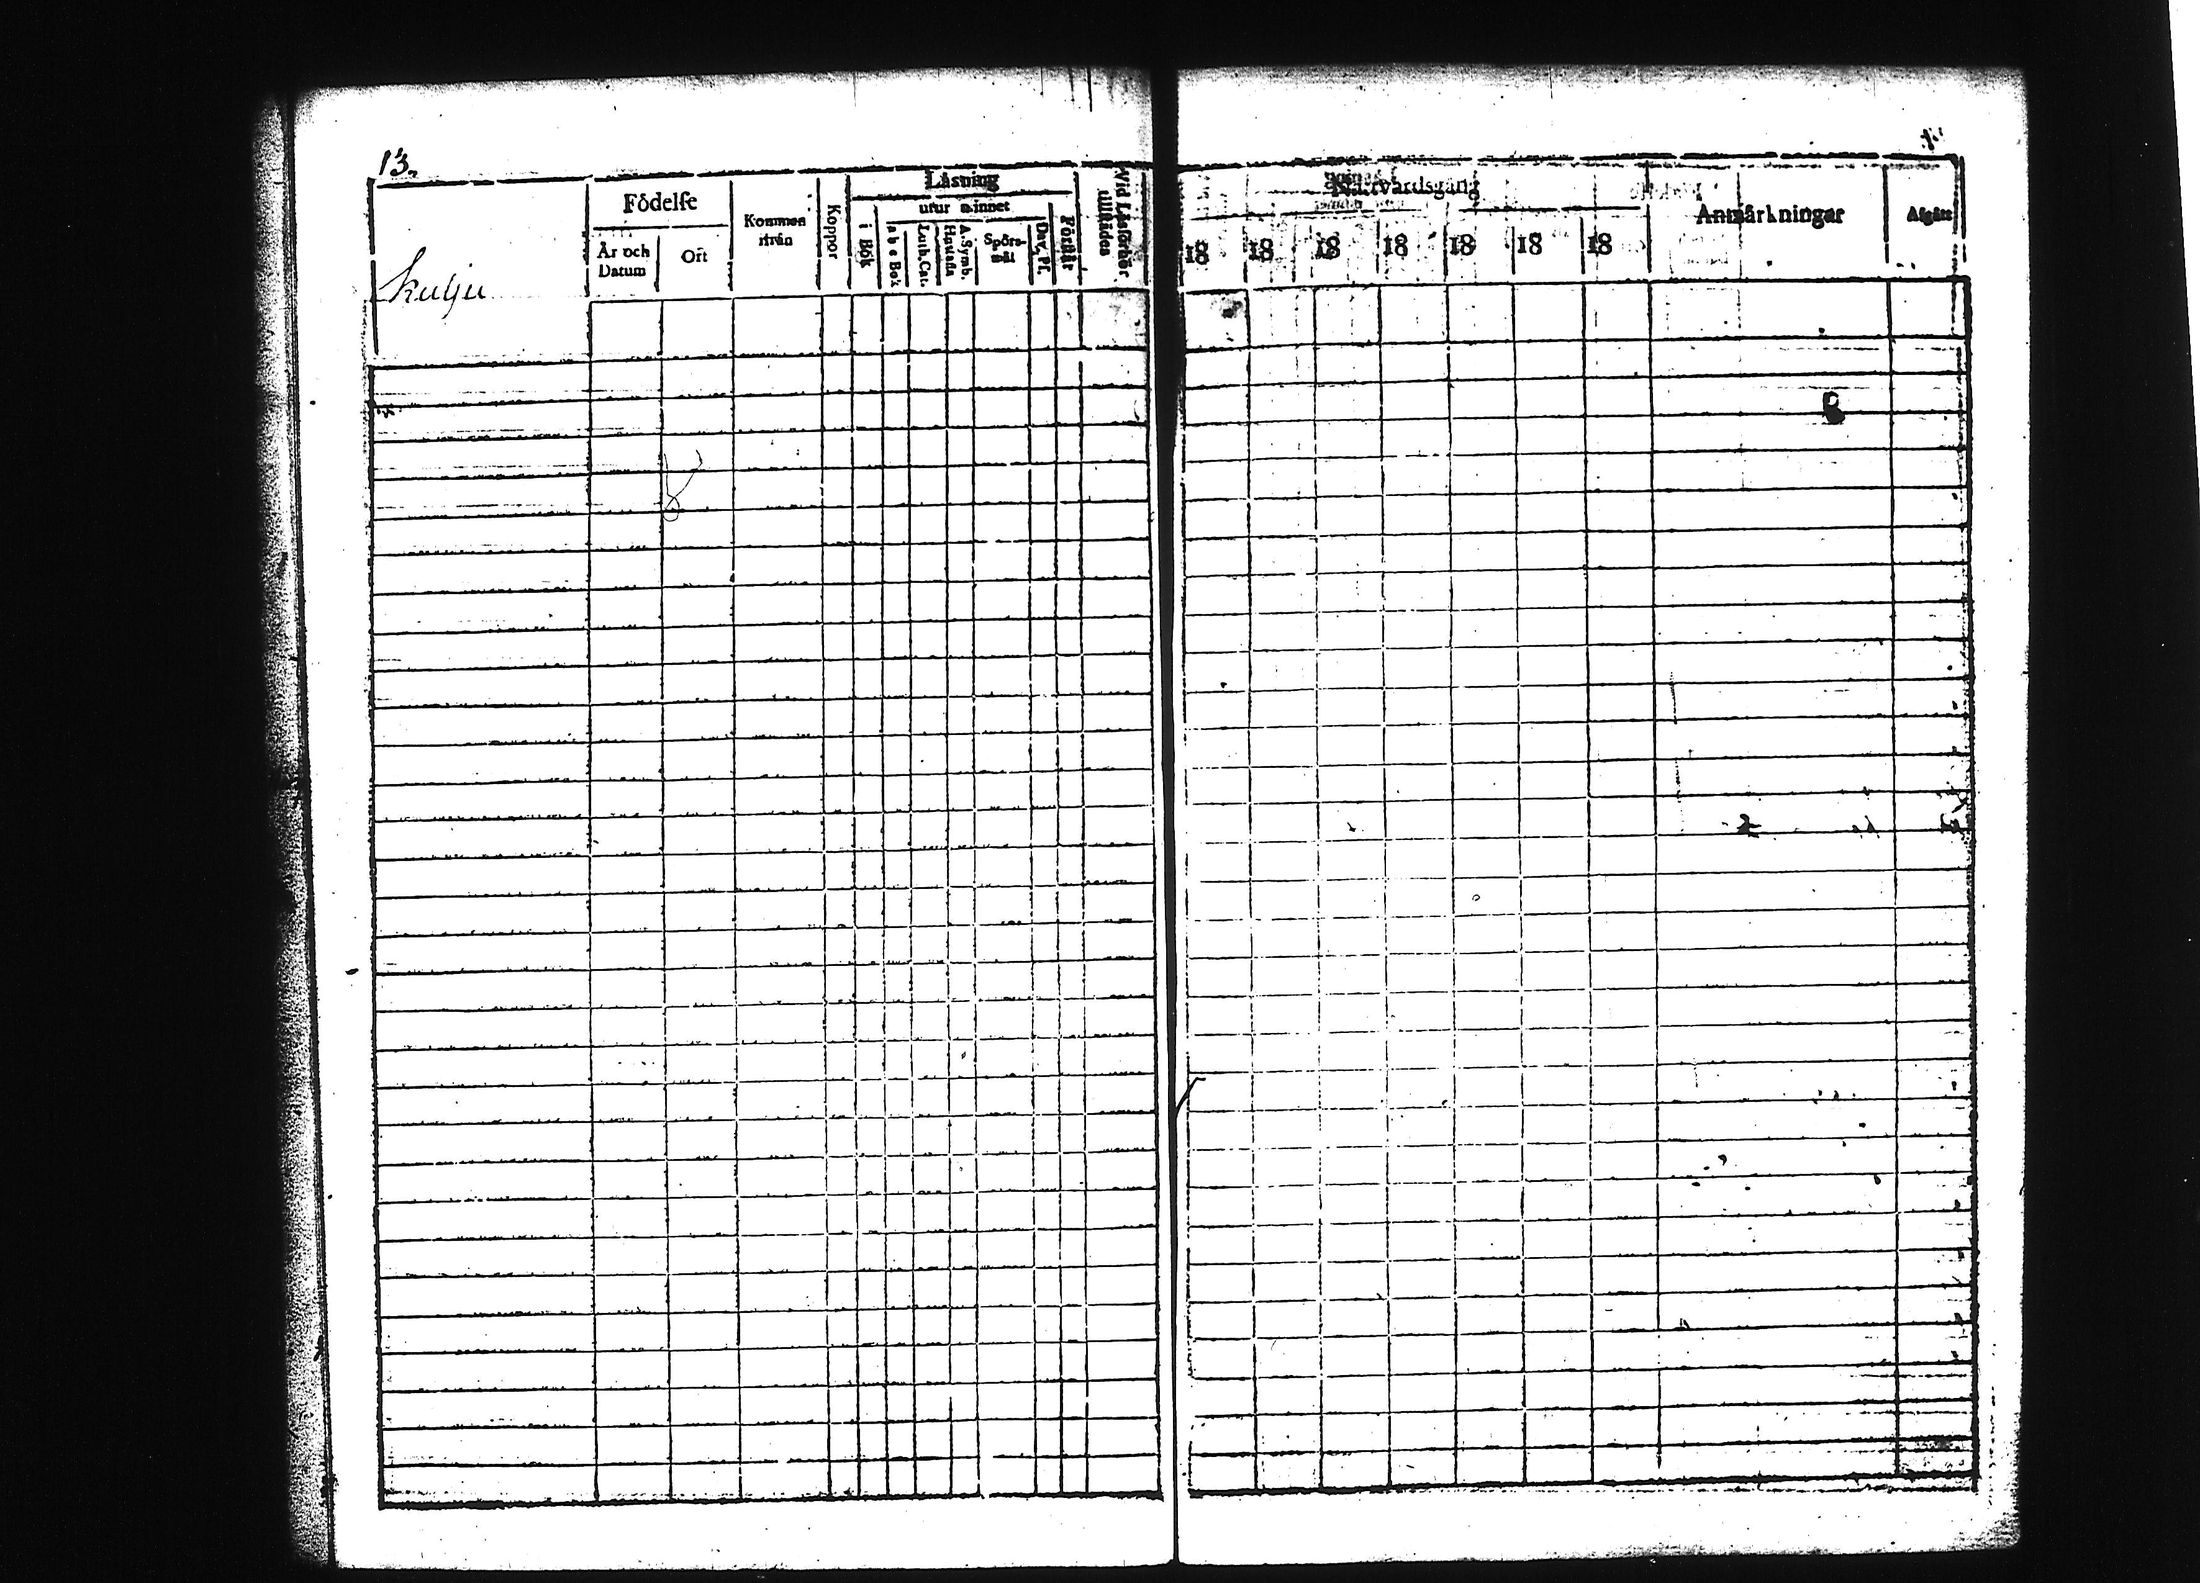 13.
Kulju
Födelse
År och Datum
Ort
Kommen ifrån
Koppor
Läsning
i Bok
utur minnet
a b c Bok
Luth. Cat.
Hustafla
A. Symb.
Spörsmål
Dav. Ps.
Förstår
Vid Läsförhör tillstädes
Nattvardsgång
18 18 18 18 18 18 18
Anmärkningar
Afgått